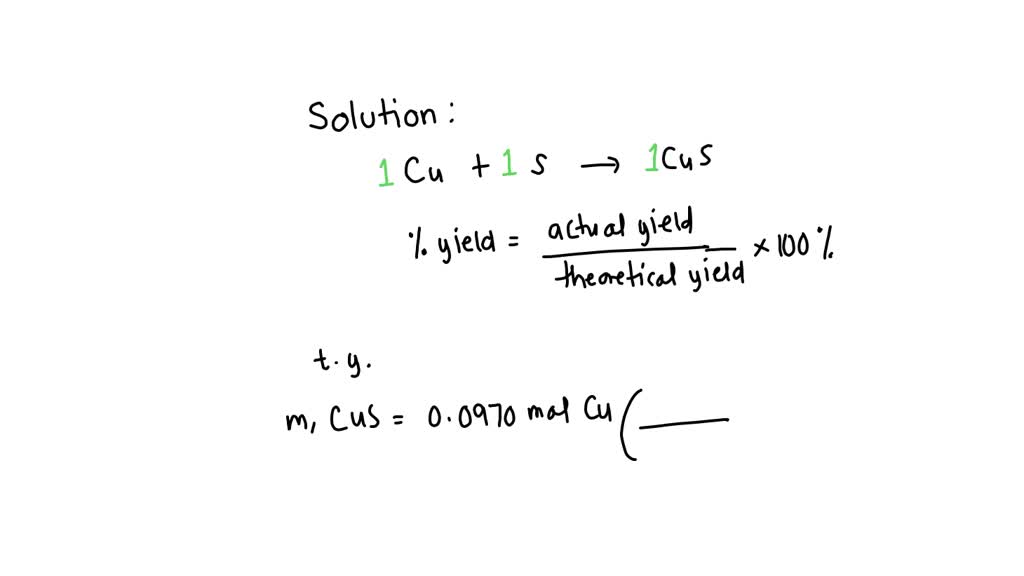 Solution:
1 Cu + 1 S → 1CuS
% yield = actual yield / theoretical yield × 100%
t.y.
m, CuS = 0.0970 mol Cu (